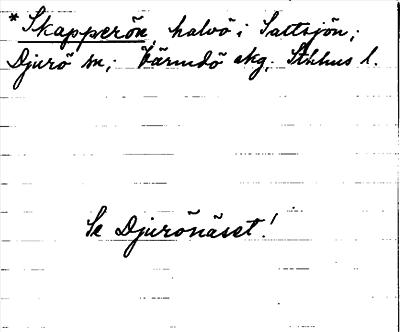 *Skapperön, halvö i Saltsjön;
Djurö sn; Värmdö skg. Sthlms l.
Se Djurönäset!